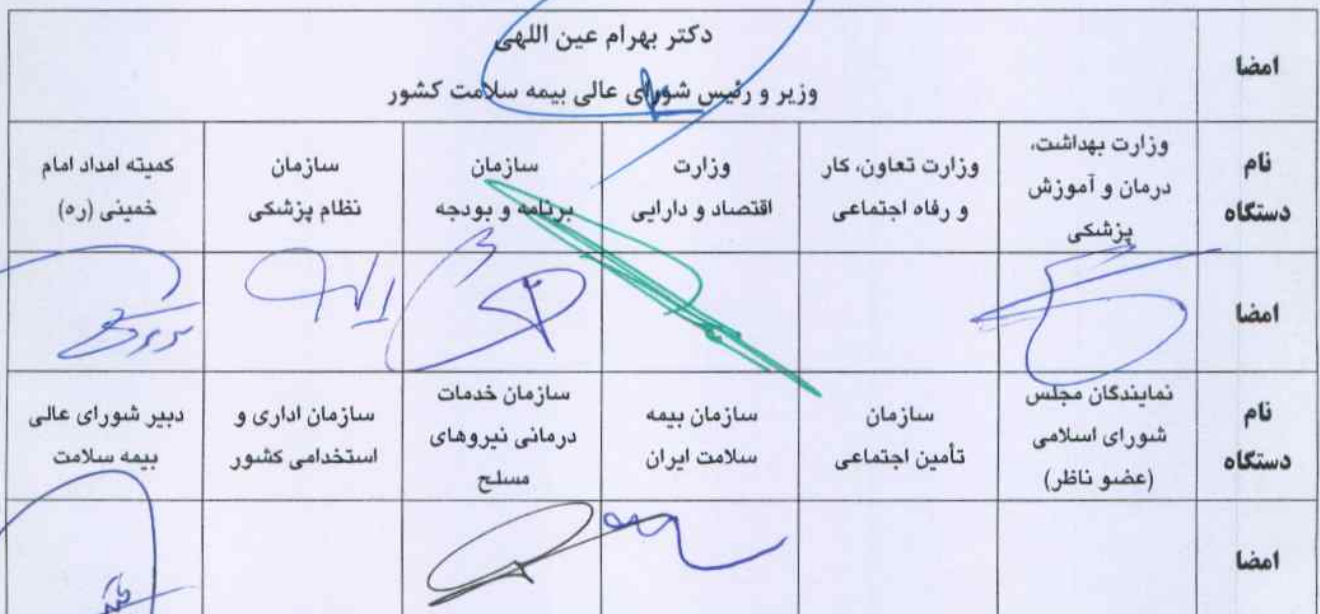 امضا
دکتر بهرام عین اللهی
وزیر و رئیس شورای عالی بیمه سلامت کشور
نام
دستگاه
وزارت بهداشت،
درمان و آموزش
پزشکی
وزارت تعاون، کار
و رفاه اجتماعی
وزارت
اقتصاد و دارایی
سازمان
برنامه و بودجه
سازمان
نظام پزشکی
کمیته امداد امام
خمینی (ره)
امضا
نام
دستگاه
نمایندگان مجلس
شورای اسلامی
(عضو ناظر)
سازمان
تأمین اجتماعی
سازمان بیمه
سلامت ایران
سازمان خدمات
درمانی نیروهای
مسلح
سازمان اداری و
استخدامی کشور
دبیر شورای عالی
بیمه سلامت
امضا